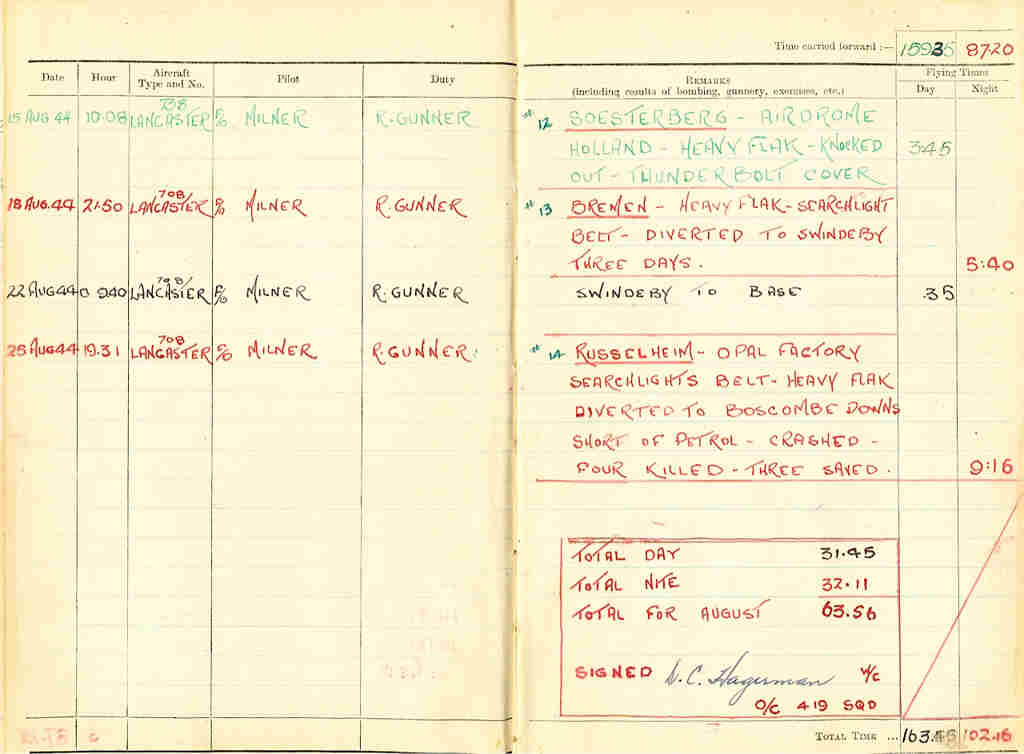 Time carried forward :— 159 35 87·20
Date Hour Aircraft Type and No. Pilot Duty REMARKS (including results of bombing, gunnery, exercises, etc.) Flying Times Day Night
15 AUG 44 10·08 708 LANCASTER F/O MILNER R. GUNNER "12 SOESTERBERG - AIRDROME
HOLLAND - HEAVY FLAK - KNOCKED 3:45
OUT - THUNDERBOLT COVER
18 AUG. 44 21·50 708/ LANCASTER F/O MILNER R. GUNNER "13 BREMEN - HEAVY FLAK - SEARCHLIGHT
BELT - DIVERTED TO SWINDEBY
THREE DAYS. 5:40
22 AUG 44 0940 708/ LANCASTER F/O MILNER R. GUNNER SWINDEBY TO BASE .35
25 AUG 44 19.31 708 LANCASTER F/O MILNER R. GUNNER. "14 RUSSELHEIM - OPAL FACTORY
SEARCHLIGHTS BELT - HEAVY FLAK
DIVERTED TO BOSCOMBE DOWNS
SHORT OF PETROL - CRASHED -
FOUR KILLED - THREE SAVED. 9:16
TOTAL DAY 31.45
TOTAL NITE 32.11
TOTAL FOR AUGUST 63.56
SIGNED W. C. Hagerman W/C
O/C 419 SQD
TOTAL TIME ... 163.45 102.16